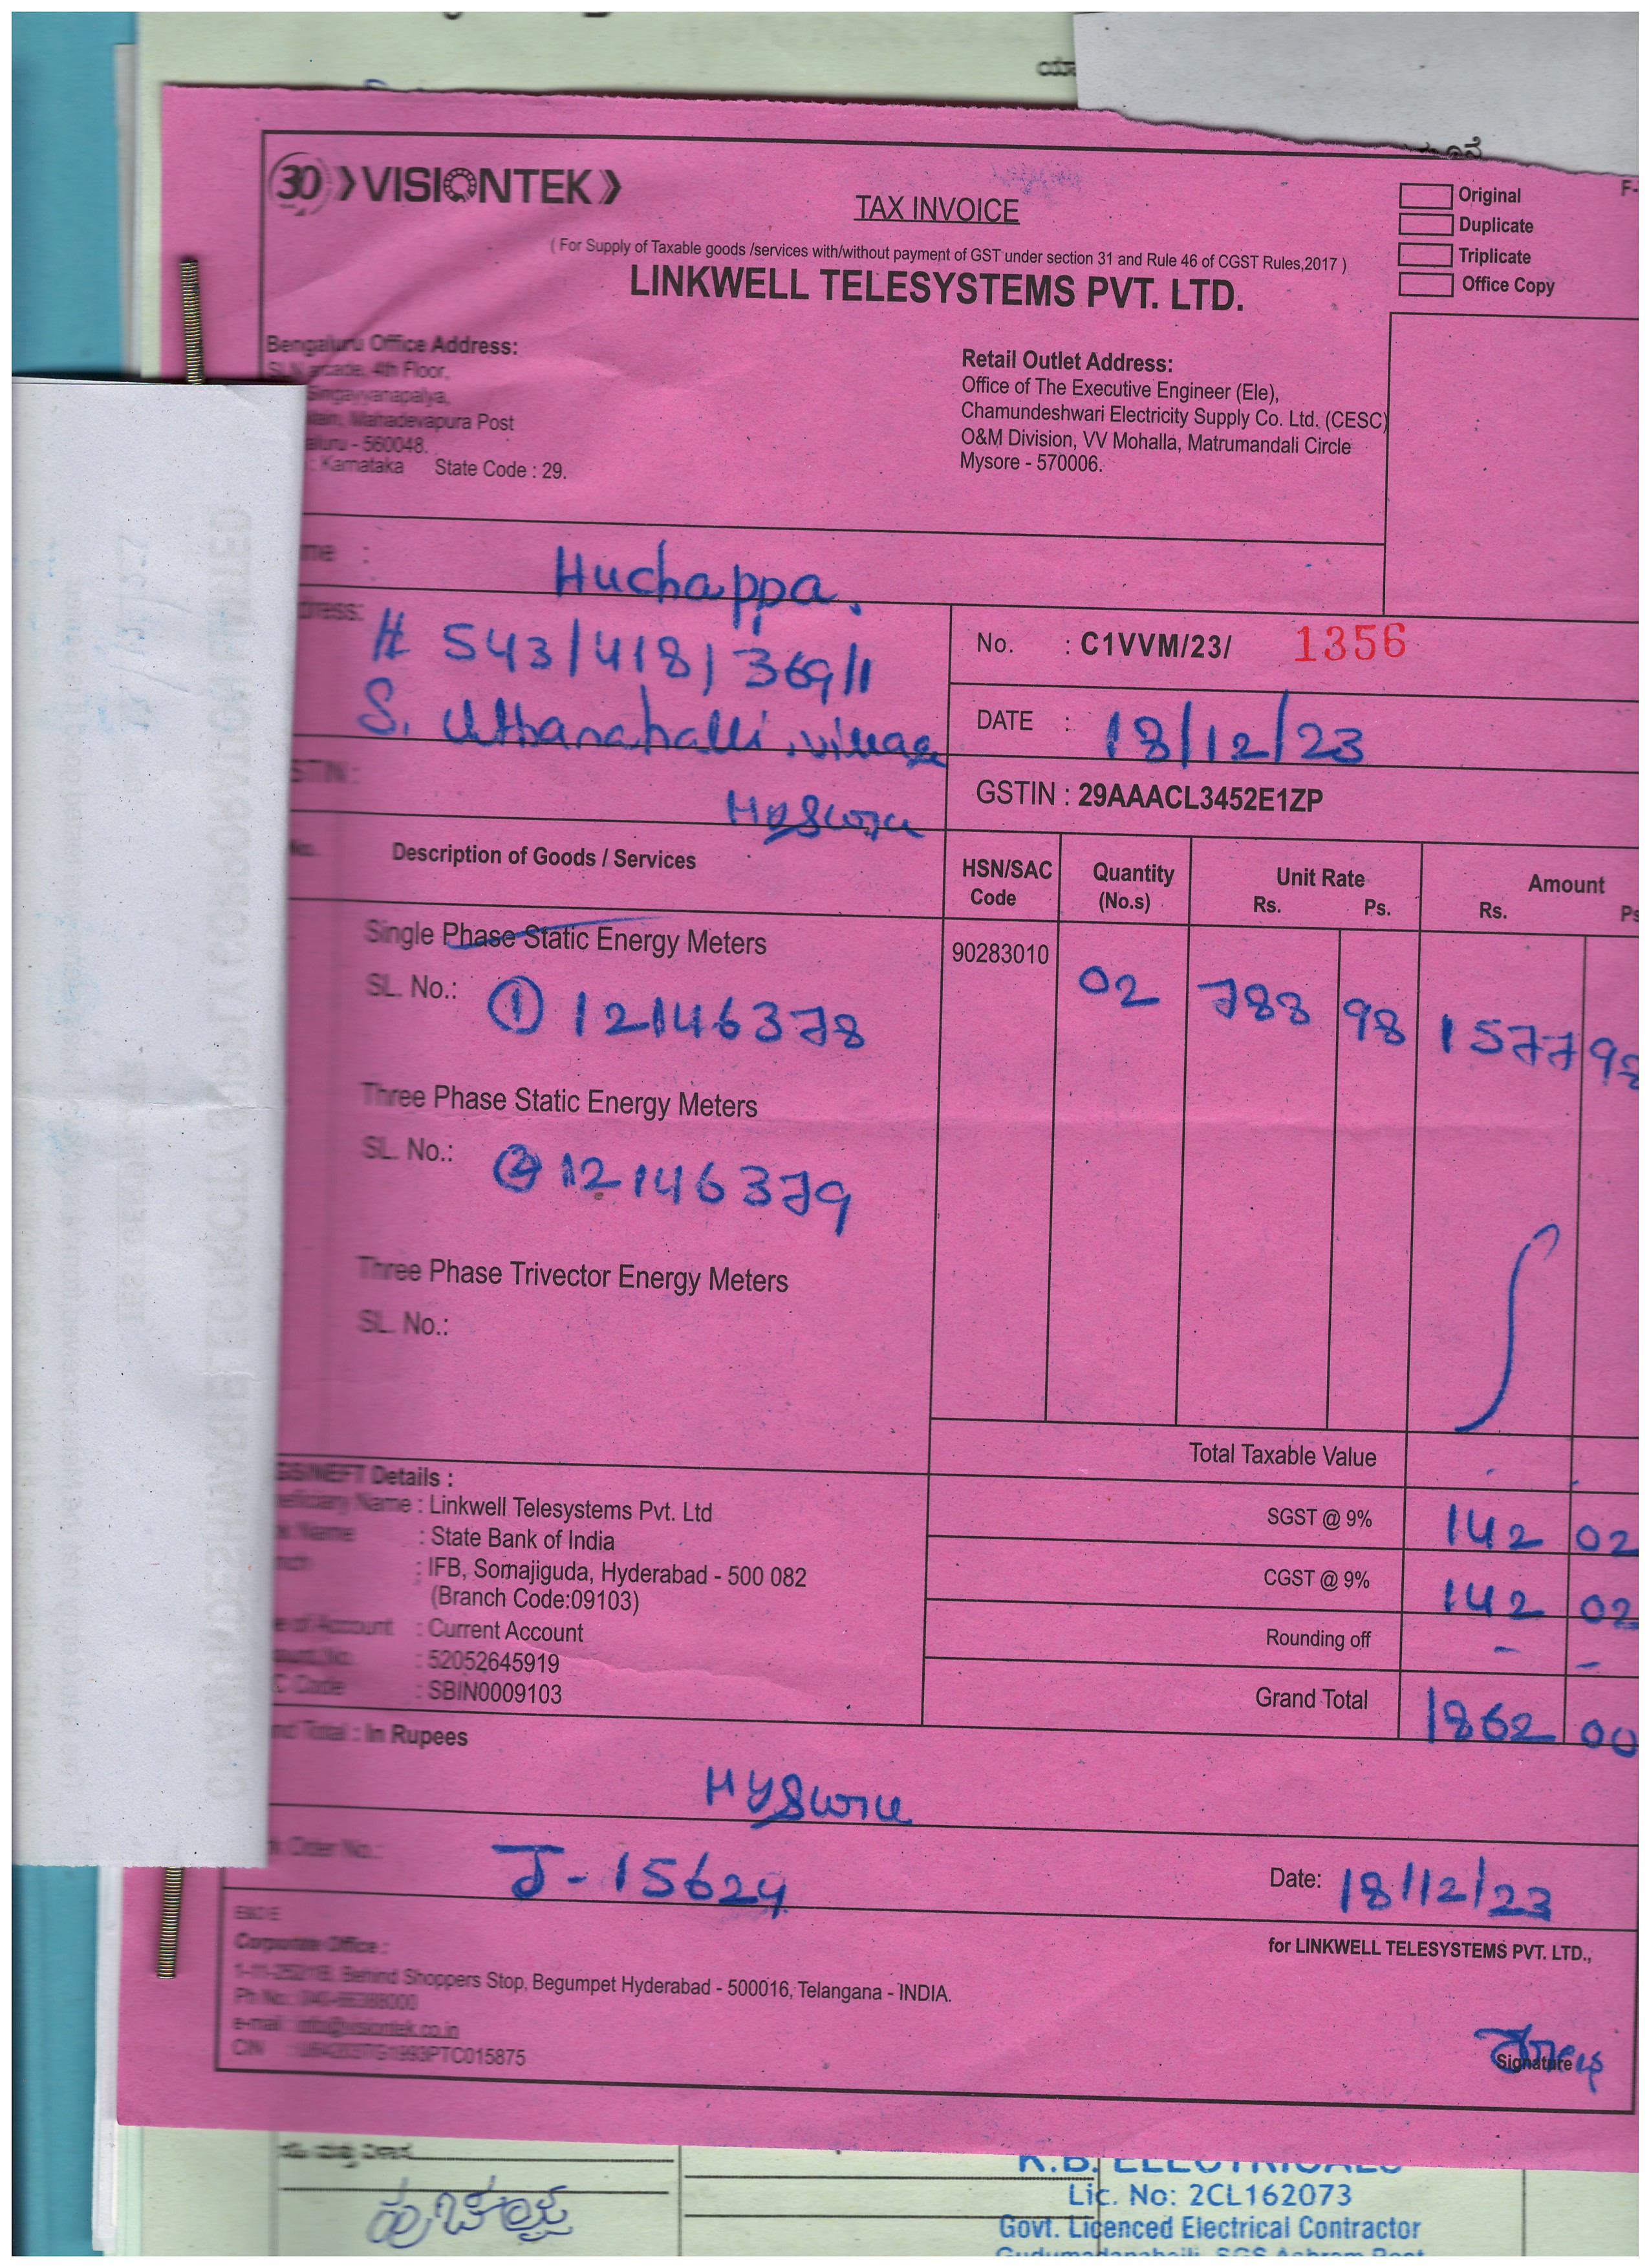 30 VISIONTEK
TAX INVOICE
( For Supply of Taxable goods /services with/without payment of GST under section 31 and Rule 46 of CGST Rules,2017 )
LINKWELL TELESYSTEMS PVT. LTD.
Original
Duplicate
Triplicate
Office Copy
F-
Bengaluru Office Address:
arcade, 4th Floor,
Singayyanapalya,
Main, Mahadevapura Post
aluru - 560048.
: Karnataka State Code : 29.
Retail Outlet Address:
Office of The Executive Engineer (Ele),
Chamundeshwari Electricity Supply Co. Ltd. (CESC)
O&M Division, VV Mohalla, Matrumandali Circle
Mysore - 570006.
me : Huchappa.
dress: # 543/418/369/1
S. Uthanahalli village
Mysore
No. : C1VVM/23/ 1356
DATE : 18/12/23
STIN :
GSTIN : 29AAACL3452E1ZP
No. Description of Goods / Services HSN/SAC Code Quantity (No.s) Unit Rate Rs. Ps. Amount Rs. Ps
Single Phase Static Energy Meters 90283010 02 788 98 1577 98
SL. No.: 1 12146378
Three Phase Static Energy Meters
SL. No.: 2 12146379
Three Phase Trivector Energy Meters
SL. No.:
Total Taxable Value
SGST @ 9% 142 02
CGST @ 9% 142 02
Rounding off - -
Grand Total 1862 00
GS/NEFT Details :
eficiary Name : Linkwell Telesystems Pvt. Ltd
Name : State Bank of India
nch : IFB, Somajiguda, Hyderabad - 500 082
(Branch Code:09103)
e of Account : Current Account
ount No. : 52052645919
C Code : SBIN0009103
nd Total : In Rupees
Mysore
Order No.: J-15624
Date: 18/12/23
E&OE
Corporate Office :
1-11-252/1/B, Behind Shoppers Stop, Begumpet Hyderabad - 500016, Telangana - INDIA.
Ph No : 040-66388000
e-mail : info@visiontek.co.in
CIN : U64203TG1993PTC015875
for LINKWELL TELESYSTEMS PVT. LTD.,
Signature
ಹುಚ್ಚಪ್ಪ
K.B. ELECTRICALS
Lic. No: 2CL162073
Govt. Licenced Electrical Contractor
Gudumadanahalli, SGS Ashram Post